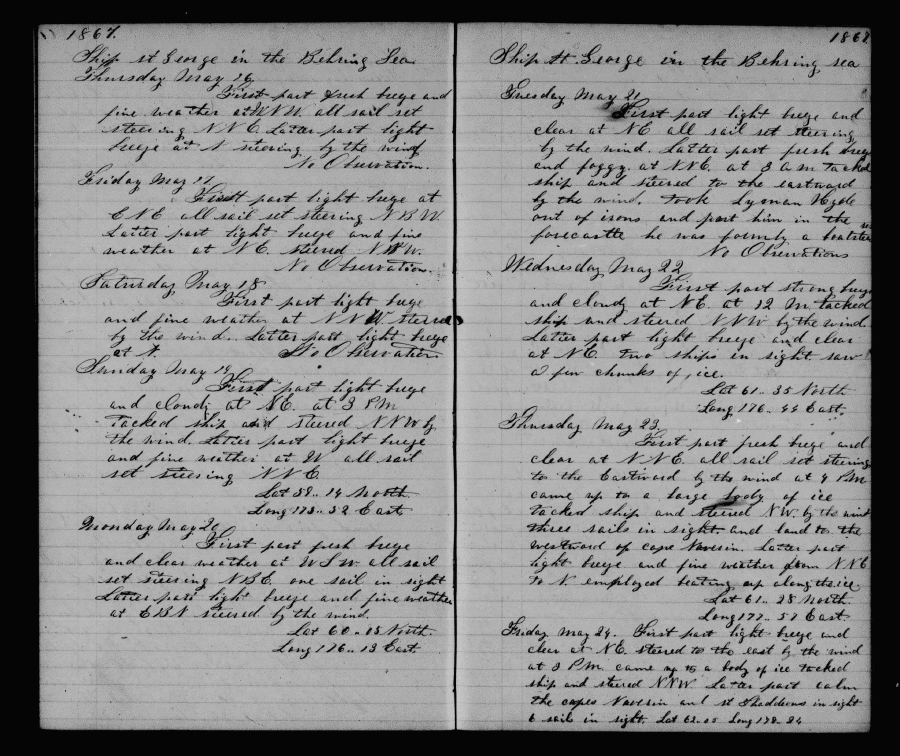 1867.
Ship St George in the Behring Sea.
Thursday May 16
First part fresh breze and
fine weather at WNW. all sail set
steering NNE. Latter part light
breze at N steering by the wind
No Observation.
Friday May 17
First part light breze at
ENE all sail set steering N B W.
Latter part light breze and fine
weather at NE. steered NNW.
No Observation.
Saturday May 18
First part light breze
and fine weather at NNW steered
by the wind. Latter part light breze
at N. No Observation.
Sunday May 19
First part light breze
and cloudy at NE. at 3 PM
tacked ship and steered NNW by
the wind. Latter part light breze
and fine weather at W all sail
set steering NNE.
Lat 59.. 14 North
Long 173.. 52 East
Monday May 20
First part fresh breze
and clear weather at WSW. all sail
set steering NBE. one sail in sight
Latter part light breze and fine weather
at EBN steered by the wind.
Lat 60.. 05 North.
Long 176.. 13 East
1867
Ship St. George in the Behring sea
Tuesday May 21
First part light breze and
clear at NE all sail set steering
by the wind. Latter part fresh breze
and foggy. at NNE. at 3 am tacked
ship and steered to the eastward
by the wind. took Lyman Hyde
out of irons and part him in the
forecastle he was formly a boatsteer
No Observations
Wednesday May 22
First part strong breze
and cloudy at NE. at 12 M. tacked
ship and steered NNW by the wind.
Latter part light breze and clear
at NE. two ships in sight. saw
a few chunks of ice.
Lat 61.. 35 North
Long 176.. 44 East.
Thursday May 23
First part fresh breze and
clear at NNE. all sail set steering
to the Eastward by the wind at 4 PM
came up to a large body of ice
tacked ship and steered NW. by the wind
three sails in sight. and land to the
westward of cape Naverin. Latter part
light breze and fine weather from NNE
to N. employed beating up along the ice.
Lat 61.. 28 North.
Long 177.. 57 East.
Friday May 24. First part light breze and
clear at NE. steered to the east by the wind
at 3 P.M. came up to a body of ice tacked
ship and steered NNW. Latter part calm
the capes Naverin and St Thaddeus in sight
6 sails in sight. Lat 62.. 05 Long 178.. 24